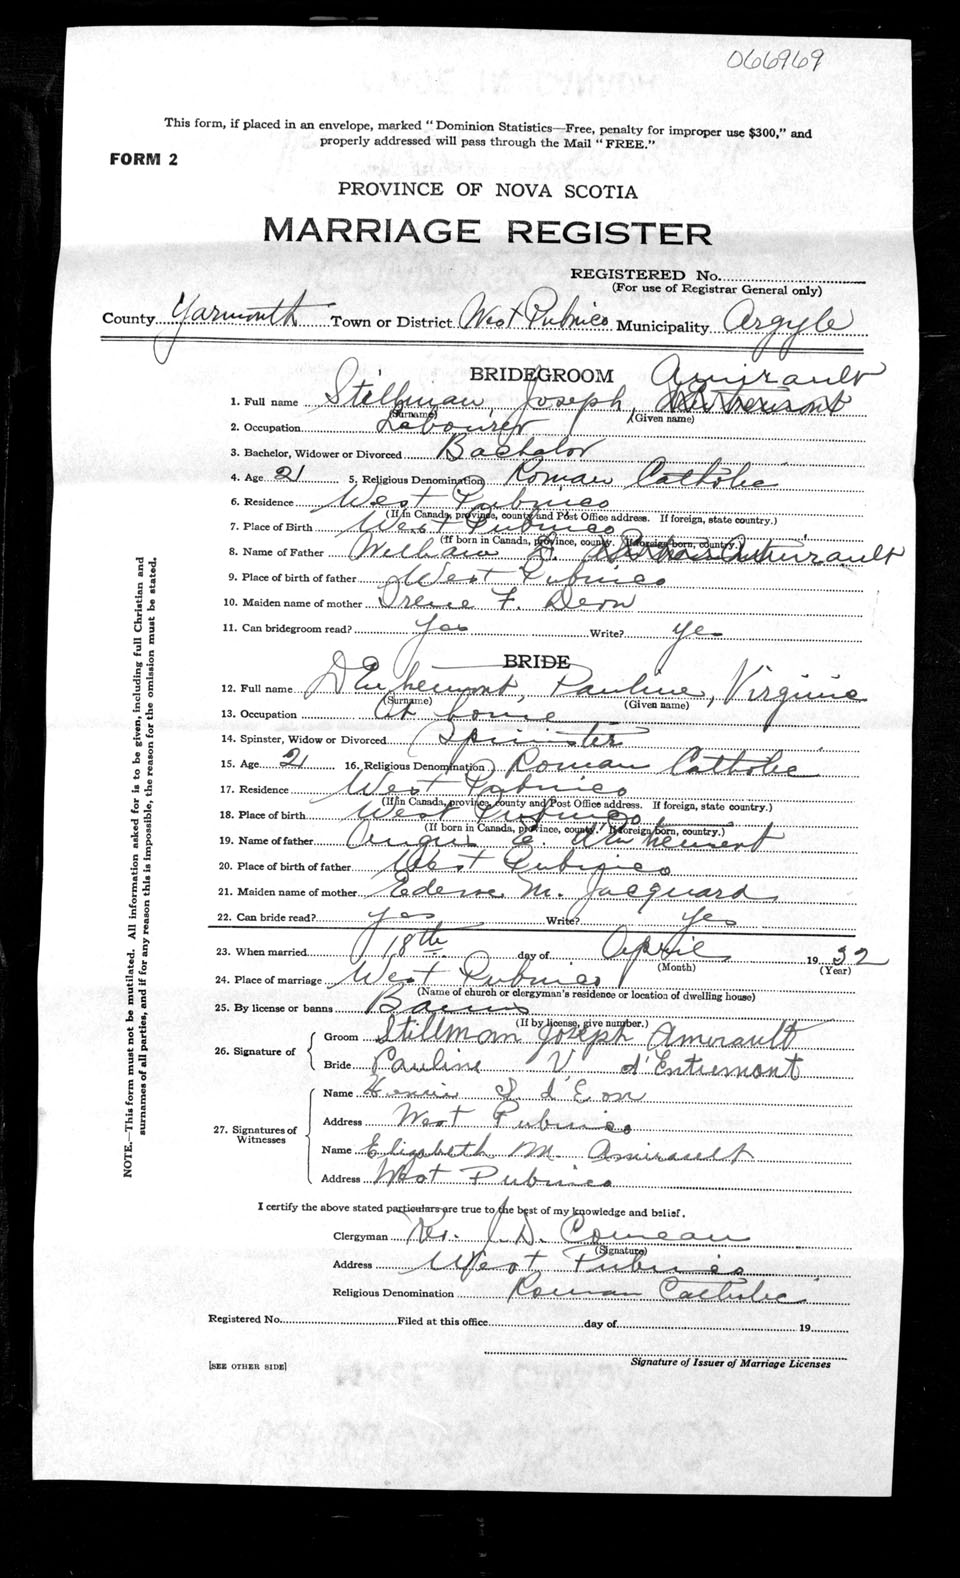 066969
This form, if placed in an envelope, marked "Dominion Statistics—Free, penalty for improper use $300," and
properly addressed will pass through the Mail "FREE."
FORM 2
PROVINCE OF NOVA SCOTIA
MARRIAGE REGISTER
REGISTERED No.
(For use of Registrar General only)
County Yarmouth Town or District West Pubnico Municipality Argyle
BRIDEGROOM Amirault
1. Full name Stillman, Joseph,
(Surname) (Given name)
2. Occupation Labourer
3. Bachelor, Widower or Divorced Bachelor
4. Age 21 5. Religious Denomination Roman Catholic
6. Residence West Pubnico
(If in Canada, province, county and Post Office address. If foreign, state country.)
7. Place of Birth West Pubnico
(If born in Canada, province, county. If foreign born, country.)
8. Name of Father William Amirault
9. Place of birth of father West Pubnico
10. Maiden name of mother Irene F. Deon
11. Can bridegroom read? Yes Write? Yes
BRIDE
12. Full name D'Entremont, Pauline, Virginie
(Surname) (Given name)
13. Occupation At home
14. Spinster, Widow or Divorced Spinster
15. Age 21 16. Religious Denomination Roman Catholic
17. Residence West Pubnico
(If in Canada, province, county and Post Office address. If foreign, state country.)
18. Place of birth West Pubnico
(If born in Canada, province, county. If foreign born, country.)
19. Name of father Angus E. d'Entremont
20. Place of birth of father West Pubnico
21. Maiden name of mother M. Jacquard
22. Can bride read? Yes Write? Yes
23. When married 18th day of April 19 32
(Month) (Year)
24. Place of marriage West Pubnico
(Name of church or clergyman's residence or location of dwelling house)
25. By license or banns Banns
(If by license, give number.)
26. Signature of
Groom Stillman Joseph Amirault
Bride Pauline V d'Entremont
27. Signatures of Witnesses
Name d'Eon
Address West Pubnico
Name Elizabeth M. Amirault
Address West Pubnico
I certify the above stated particulars are true to the best of my knowledge and belief.
Clergyman Rev. J. D. Comeau
(Signature)
Address West Pubnico
Religious Denomination Roman Catholic
Registered No. Filed at this office day of 19
Signature of Issuer of Marriage Licenses
[SEE OTHER SIDE]
NOTE.—This form must not be mutilated. All information asked for is to be given, including full Christian and
surnames of all parties, and if for any reason this is impossible, the reason for the omission must be stated.